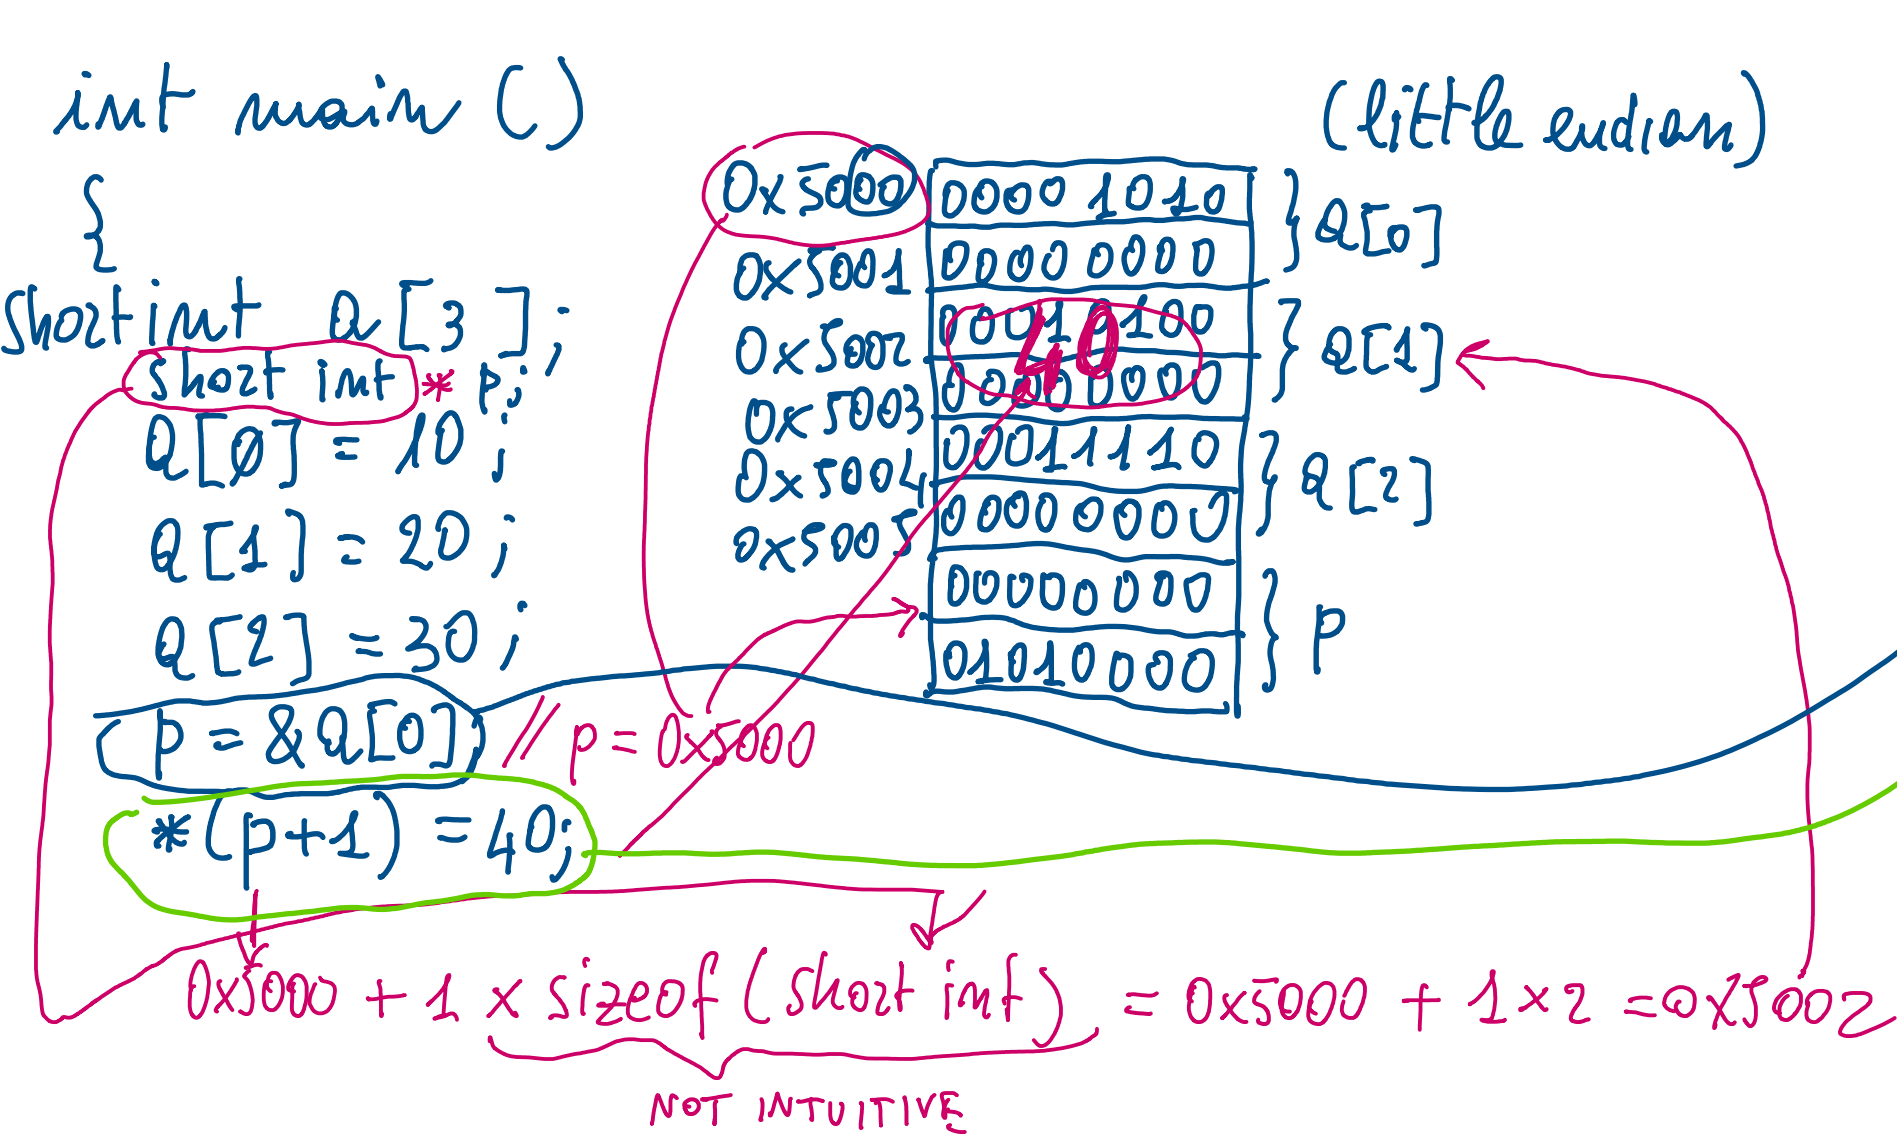 int main ()
{
short int Q [ 3 ] ;
short int * p;
Q [0] = 10 ;
Q [1] = 20 ;
Q [2] = 30 ;
p = & Q[0] // p = 0x5000
*(p+1) = 40;
0x5000 + 1 x sizeof (short int) = 0x5000 + 1 x 2 = 0x5002
NOT INTUITIVE
(little endian)
0x5000 0000 1010 } Q[0]
0x5001 0000 0000
0x5002 00010100 } Q[1]
40
0x5003 00000000
0x5004 00011110 } Q[2]
0x5005 0000 0000
00000000 } p
01010000